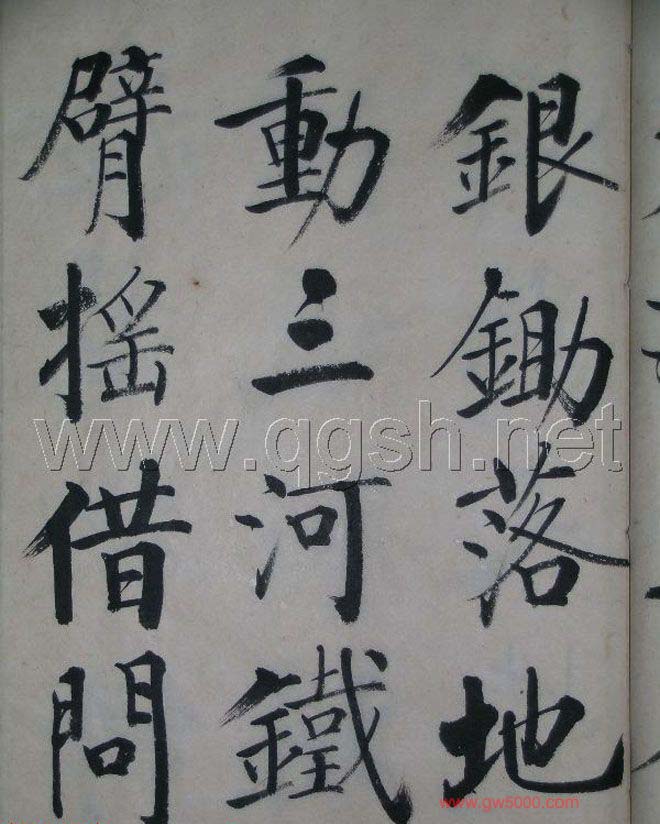 銀鋤落地
動三河鐵
臂摇借問
www.qgsh.net
www.gw5000.com